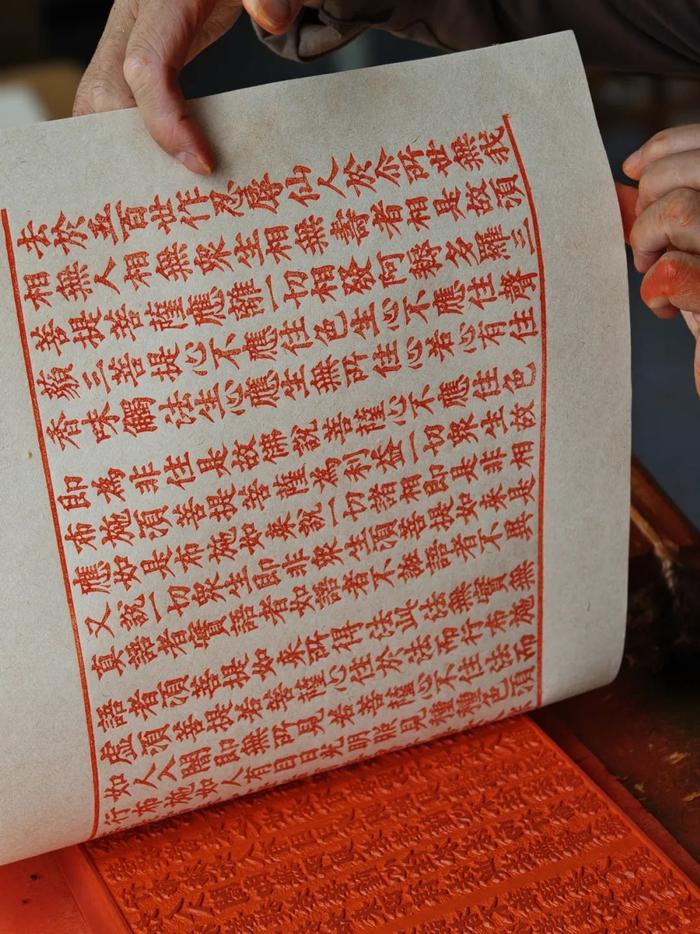 去於五百世作忍辱仙人於尒所世無我
相無人相無眾生相無壽者相是故須
菩提菩薩應離一切相發阿耨多羅三
藐三菩提心不應住色生心不應住聲
香味觸法生心應生無所住心若心有住
即為非住是故佛說菩薩心不應住色
布施須菩提菩薩為利益一切眾生故
應如是布施如來說一切諸相即是非相
又說一切眾生即非眾生須菩提如來是
真語者實語者如語者不誑語者不異
語者須菩提如來所得法此法無實無
虛須菩提若菩薩心住於法而行布施
如人入闇即無所見若菩薩心不住法而
行布施如人有目日光明照見種種色須